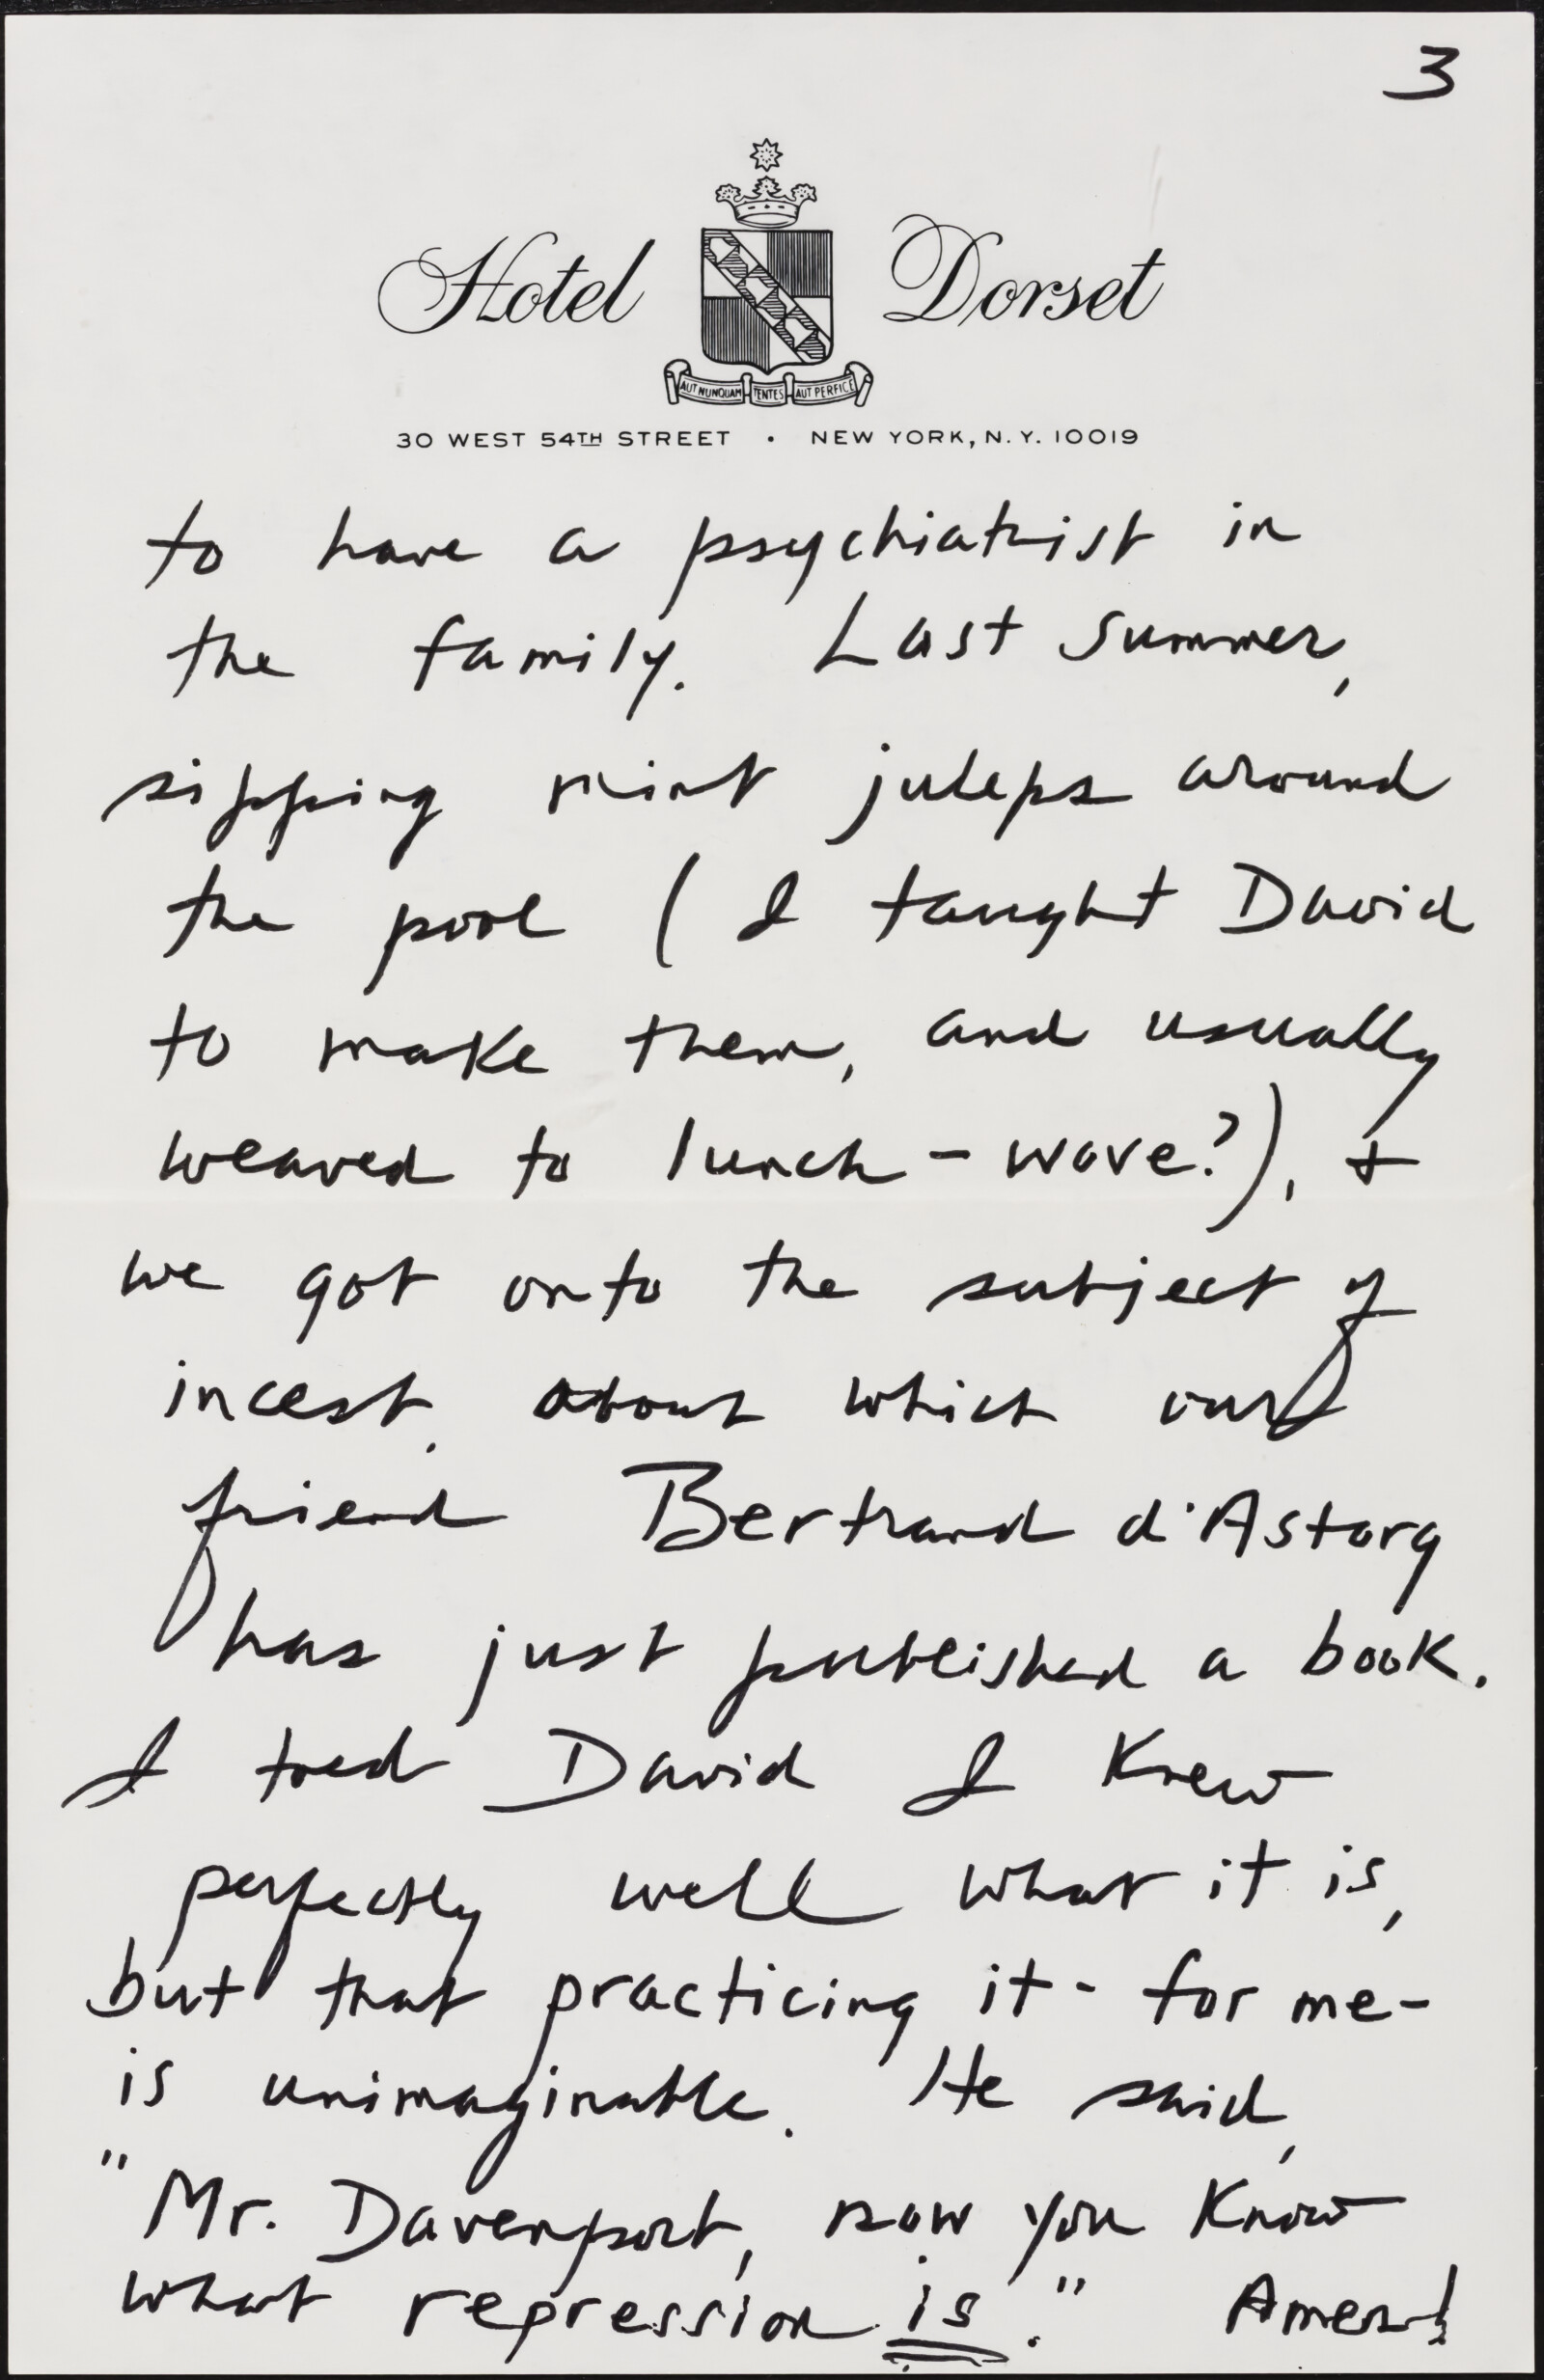 3
Hotel Dorset
AUT NUNQUAM TENTES AUT PERFICE
30 WEST 54TH STREET • NEW YORK, N.Y. 10019
to have a psychiatrist in
the family. Last summer,
sipping mint juleps around
the pool (I taught David
to make them, and usually
weaved to lunch - wove?), +
we got onto the subject of
incest, about which our
friend Bertrand d'Astorg
has just published a book.
I told David I knew
perfectly well what it is,
but that practicing it - for me -
is unimaginable. He said,
"Mr. Davenport, now you know
what repression is." Amen!